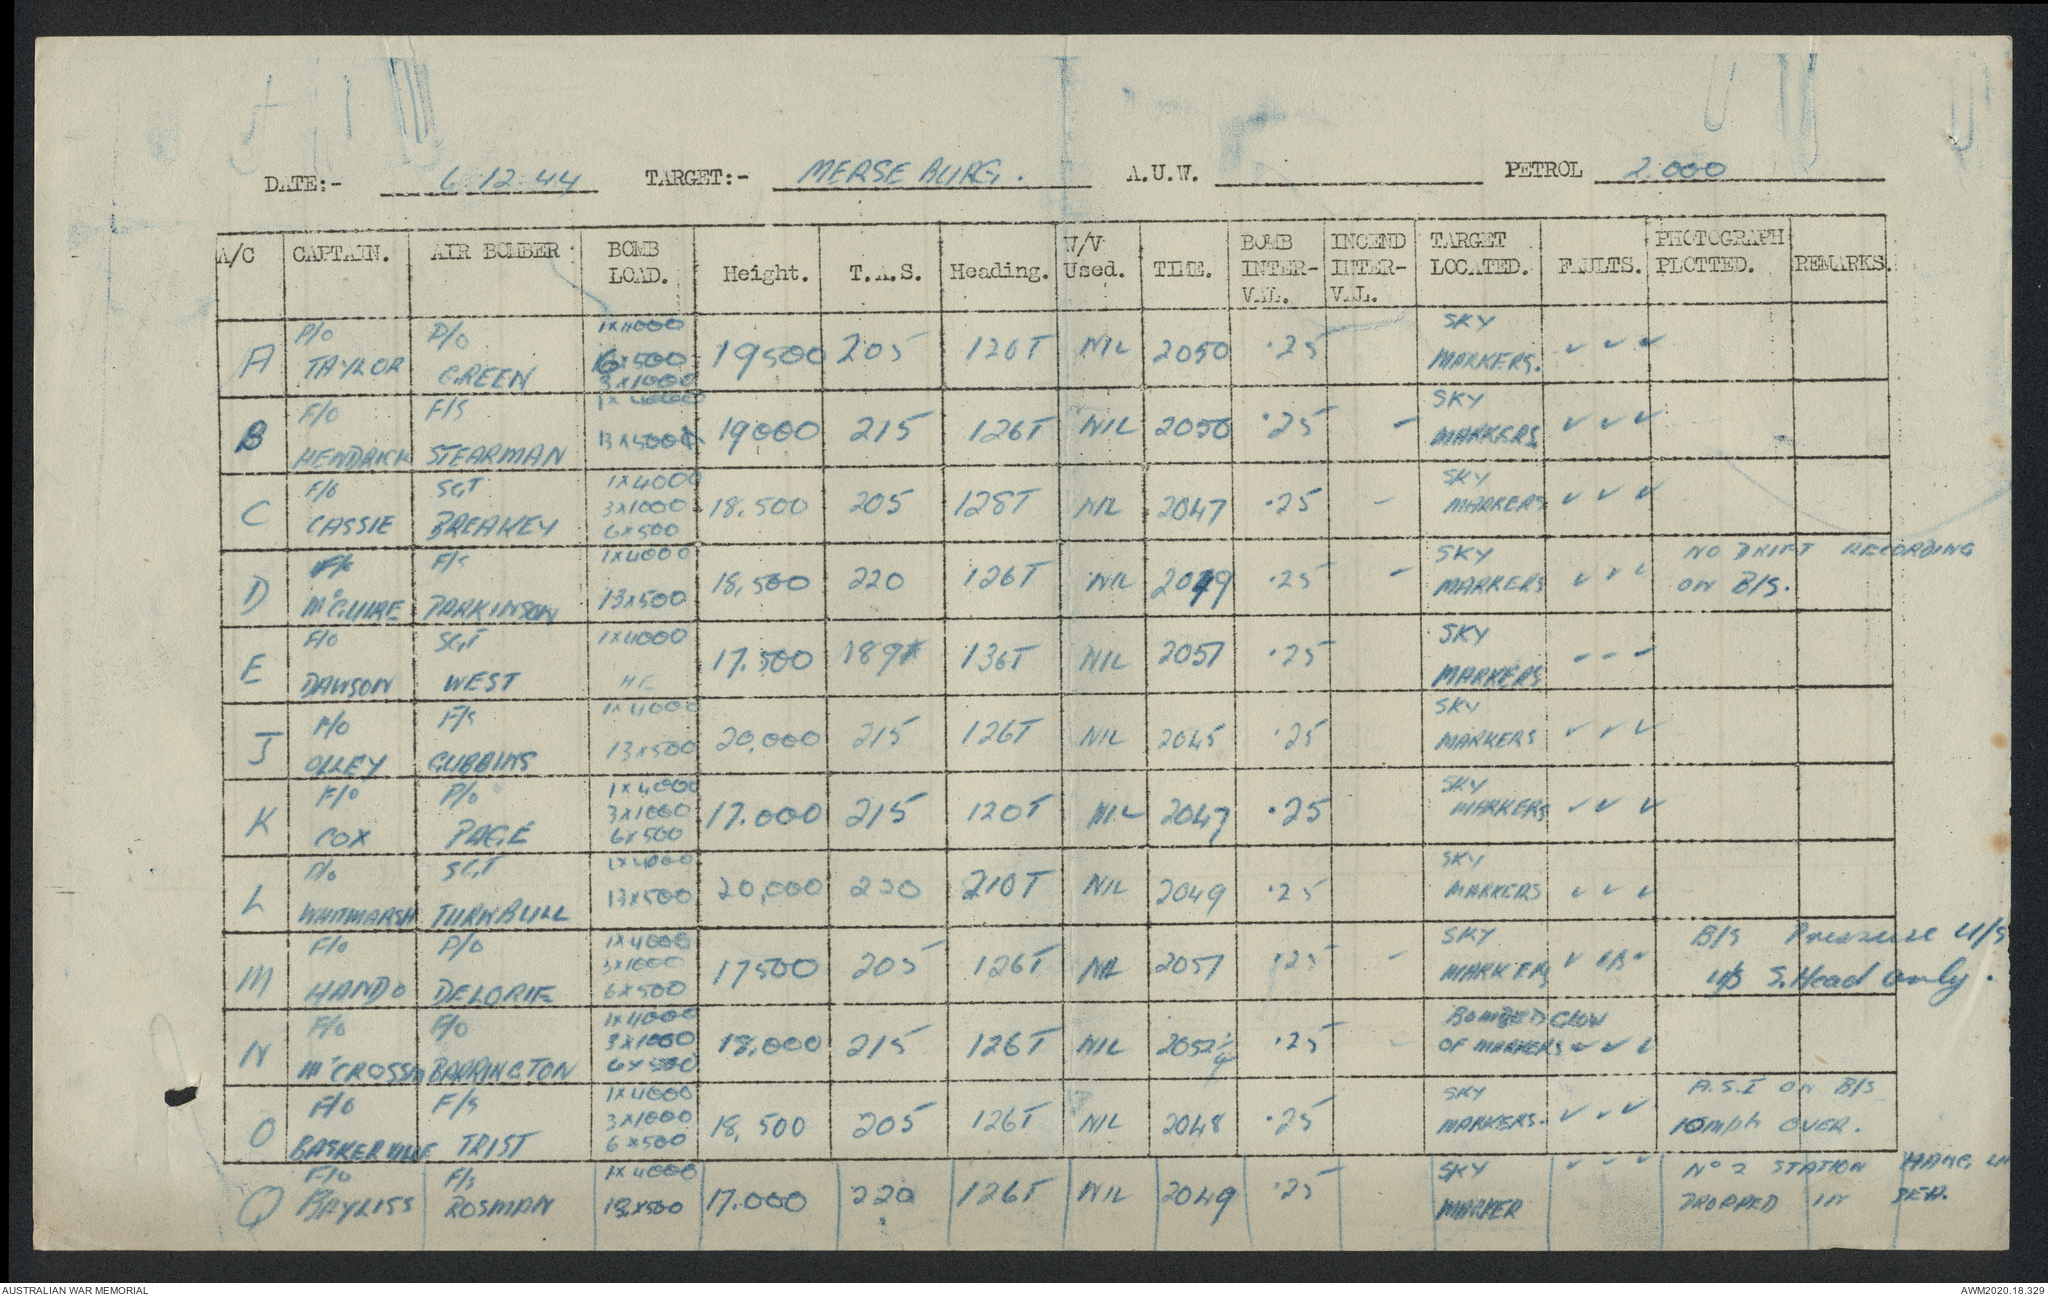 DATE:- 6.12.44 TARGET:- MERSEBURG. A.U.W. PETROL 2.000
A/C CAPTAIN. AIR BOMBER BOMB LOAD. Height. T.A.S. Heading. W/V Used. TIME. BOMB INTER-VAL. INCEND INTER-VAL. TARGET LOCATED. FAULTS. PHOTOGRAPH PLOTTED. REMARKS.
A P/O TAYLOR P/O GREEN 1x4000 6x500 3x1000 19500 205 126T NIL 2050 .25 SKY MARKERS. ✓ ✓ ✓
B F/O HENDRICK F/S STEARMAN 1x4000 13x500 19000 215 126T NIL 2050 .25 - SKY MARKERS ✓ ✓ ✓
C F/O CASSIE SGT BREAKEY 1x4000 3x1000 6x500 18,500 205 128T NIL 2047 .25 - SKY MARKERS ✓ ✓ ✓
D McGUIRE F/S PARKINSON 1x4000 13x500 18,500 220 126T NIL 2049 .25 - SKY MARKERS ✓ ✓ ✓ NO DRIFT RECORDING ON B/S.
E F/O DAWSON SGT WEST 1x4000 HE 17.500 189 136T NIL 2051 .25 SKY MARKERS - - -
J F/O OLLEY F/S GUBBINS 1x4000 13x500 20,000 215 126T NIL 2045 .25 SKY MARKERS ✓ ✓ ✓
K F/O COX P/O PAGE 1x4000 3x1000 6x500 17.000 215 120T NIL 2047 .25 SKY MARKERS ✓ ✓ ✓
L P/O WHITMARSH SGT TURNBULL 1x4000 13x500 20,000 220 210T NIL 2049 .25 SKY MARKERS ✓ ✓ ✓
M F/O HANDO P/O DELORIE 1x4000 3x1000 6x500 17500 205 126T NIL 2051 .25 - SKY MARKERS ✓ B/S ✓ B/S Pressure U/S U/S S.Head only.
N F/O McCROSSIN F/O BARRINGTON 1x4000 3x1000 6x500 18,000 215 126T NIL 2052¼ .25 BOMBED GLOW OF MARKERS ✓ ✓ ✓
O F/O BASKERVILLE F/S TRIST 1x4000 3x1000 6x500 18,500 205 126T NIL 2048 .25 SKY MARKERS. ✓ ✓ ✓ A.S.I ON B/S 10mph OVER.
Q F/O BAYLISS F/S ROSMAN 1x4000 13x500 17.000 220 126T NIL 2049 .25 SKY MARKER ✓ ✓ ✓ No 2 STATION HANG U DROPPED IN SEA.
AUSTRALIAN WAR MEMORIAL AWM2020.18.329